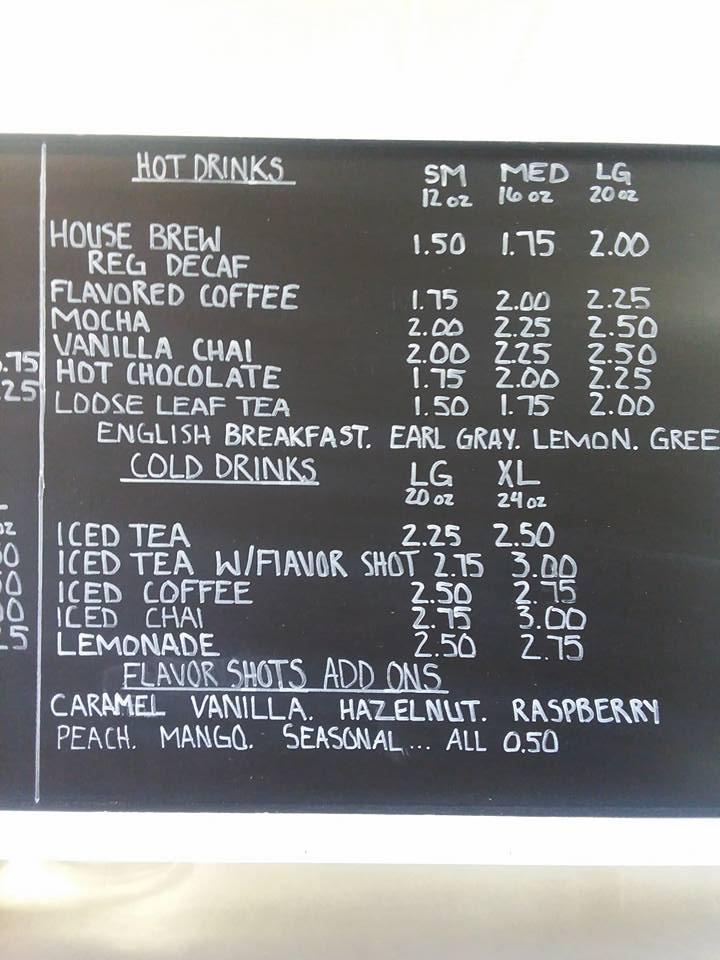 HOT DRINKS SM MED LG
12 oz 16 oz 20 oz
HOUSE BREW 1.50 1.75 2.00
REG DECAF
FLAVORED COFFEE 1.75 2.00 2.25
MOCHA 2.00 2.25 2.50
VANILLA CHAI 2.00 2.25 2.50
HOT CHOCOLATE 1.75 2.00 2.25
LOOSE LEAF TEA 1.50 1.75 2.00
ENGLISH BREAKFAST. EARL GRAY. LEMON. GREE
COLD DRINKS LG XL
20 oz 24 oz
ICED TEA 2.25 2.50
ICED TEA W/FLAVOR SHOT 2.75 3.00
ICED COFFEE 2.50 2.75
ICED CHAI 2.75 3.00
LEMONADE 2.50 2.75
FLAVOR SHOTS ADD ONS
CARAMEL VANILLA. HAZELNUT. RASPBERRY
PEACH. MANGO. SEASONAL... ALL 0.50